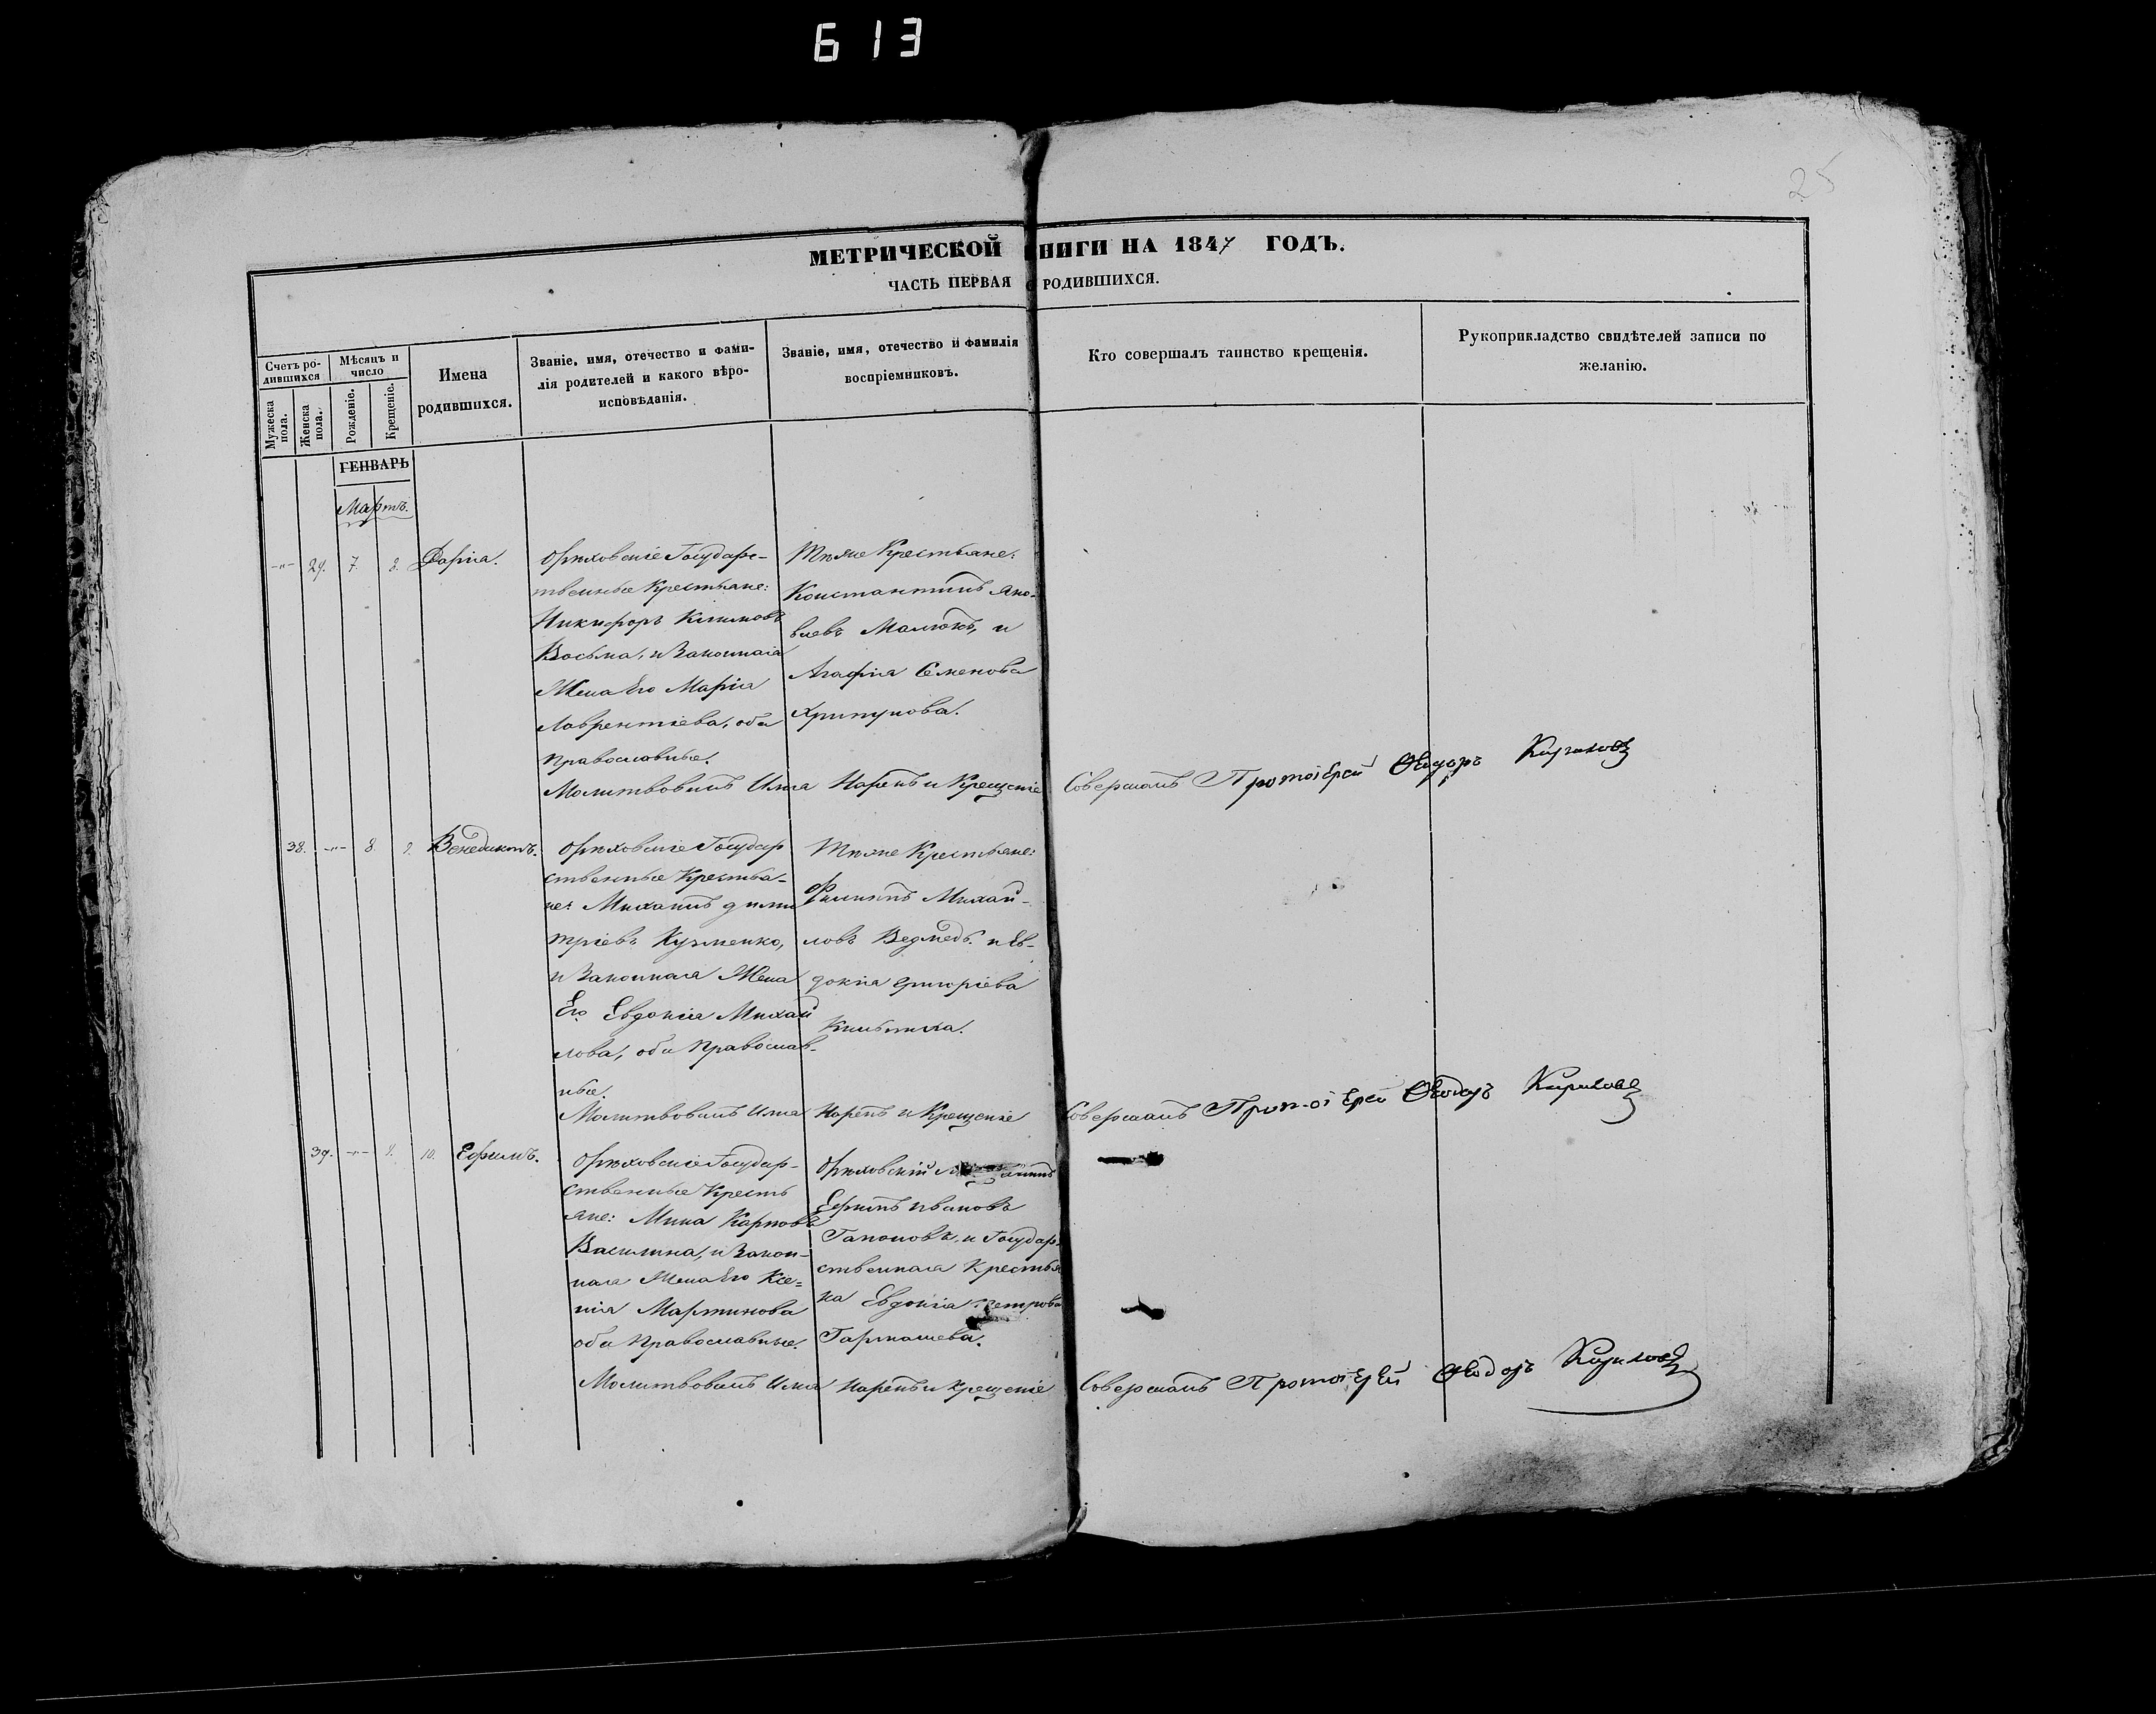 613
25
МЕТРИЧЕСКОЙ КНИГИ НА 1847 ГОДЪ.
ЧАСТЬ ПЕРВАЯ О РОДИВШИХСЯ.
Счетъ ро-
дившихся
Мужеска пола.
Женска пола.
Мѣсяцъ и
число
Рожденіе.
Крещеніе.
Имена
родившихся.
Званіе, имя, отечество и фами-
лія родителей и какого вѣро-
исповѣданія.
Званіе, имя, отечество и фамилія
воспріемниковъ.
Кто совершалъ таинство крещенія.
Рукоприкладство свидѣтелей записи по
желанію.
ГЕНВАРЬ
Мартъ.
-„- 29. 7. 8. Дарія.
Орѣховскіе Государс-
твенные Крестьяне:
Никифоръ Климовъ
Косьма, и Законная
Жена Его Марія
Лаврентіева, оба
православные.
Тѣже Крестьяне:
Константинъ Яко-
влевъ Малюкъ, и
Агафія Семенова
Хрипунова.
Молитвовалъ Имя Нарекъ и Крещеніе Совершалъ Протоіерей Ѳеодоръ Кириловъ
38. -„- 8. 9. Венедиктъ.
Орѣховскіе Государ
ственные Крестья-
не: Михаилъ Дими
тріевъ Кузменко,
и Законная Жена
Его Евдокія Михай
лова, оба Православ-
ные.
Тѣже Крестьяне:
Филиппъ Михай-
ловъ Ведмедь. и Ев-
докія Григоріева
Молитвовалъ Имя Нарекъ и Крещеніе Совершалъ Протоіерей Ѳеодоръ Кириловъ
39. -„- 9. 10. Ефимъ.
Орѣховскіе Государ-
ственные Кресть
яне: Мина Карповъ
Василина, и Закон-
ная Жена Его Ксе-
нія Мартинова
оба Православные.
Орѣховскій
Ивановъ
Гапоновъ, и Государ-
ственная Крестья
ка Евдокія Петрова
Гармашева.
Молитвовалъ Имя Нарекъ и Крещеніе Совершалъ Протоіерей Ѳеодоръ Кириловъ